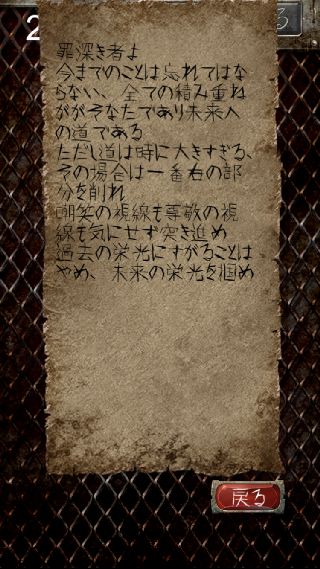 2
る
罪深き者よ
今までのことは忘れてはな
らない、全ての積み重ね
ががそなたであり未来へ
の道である
ただし道は時に大きすぎる、
その場合は一番右の部
分を削れ
嘲笑の視線も尊敬の視
線も気にせず突き進め
過去の栄光にすがることは
やめ、未来の栄光を掴め
戻る